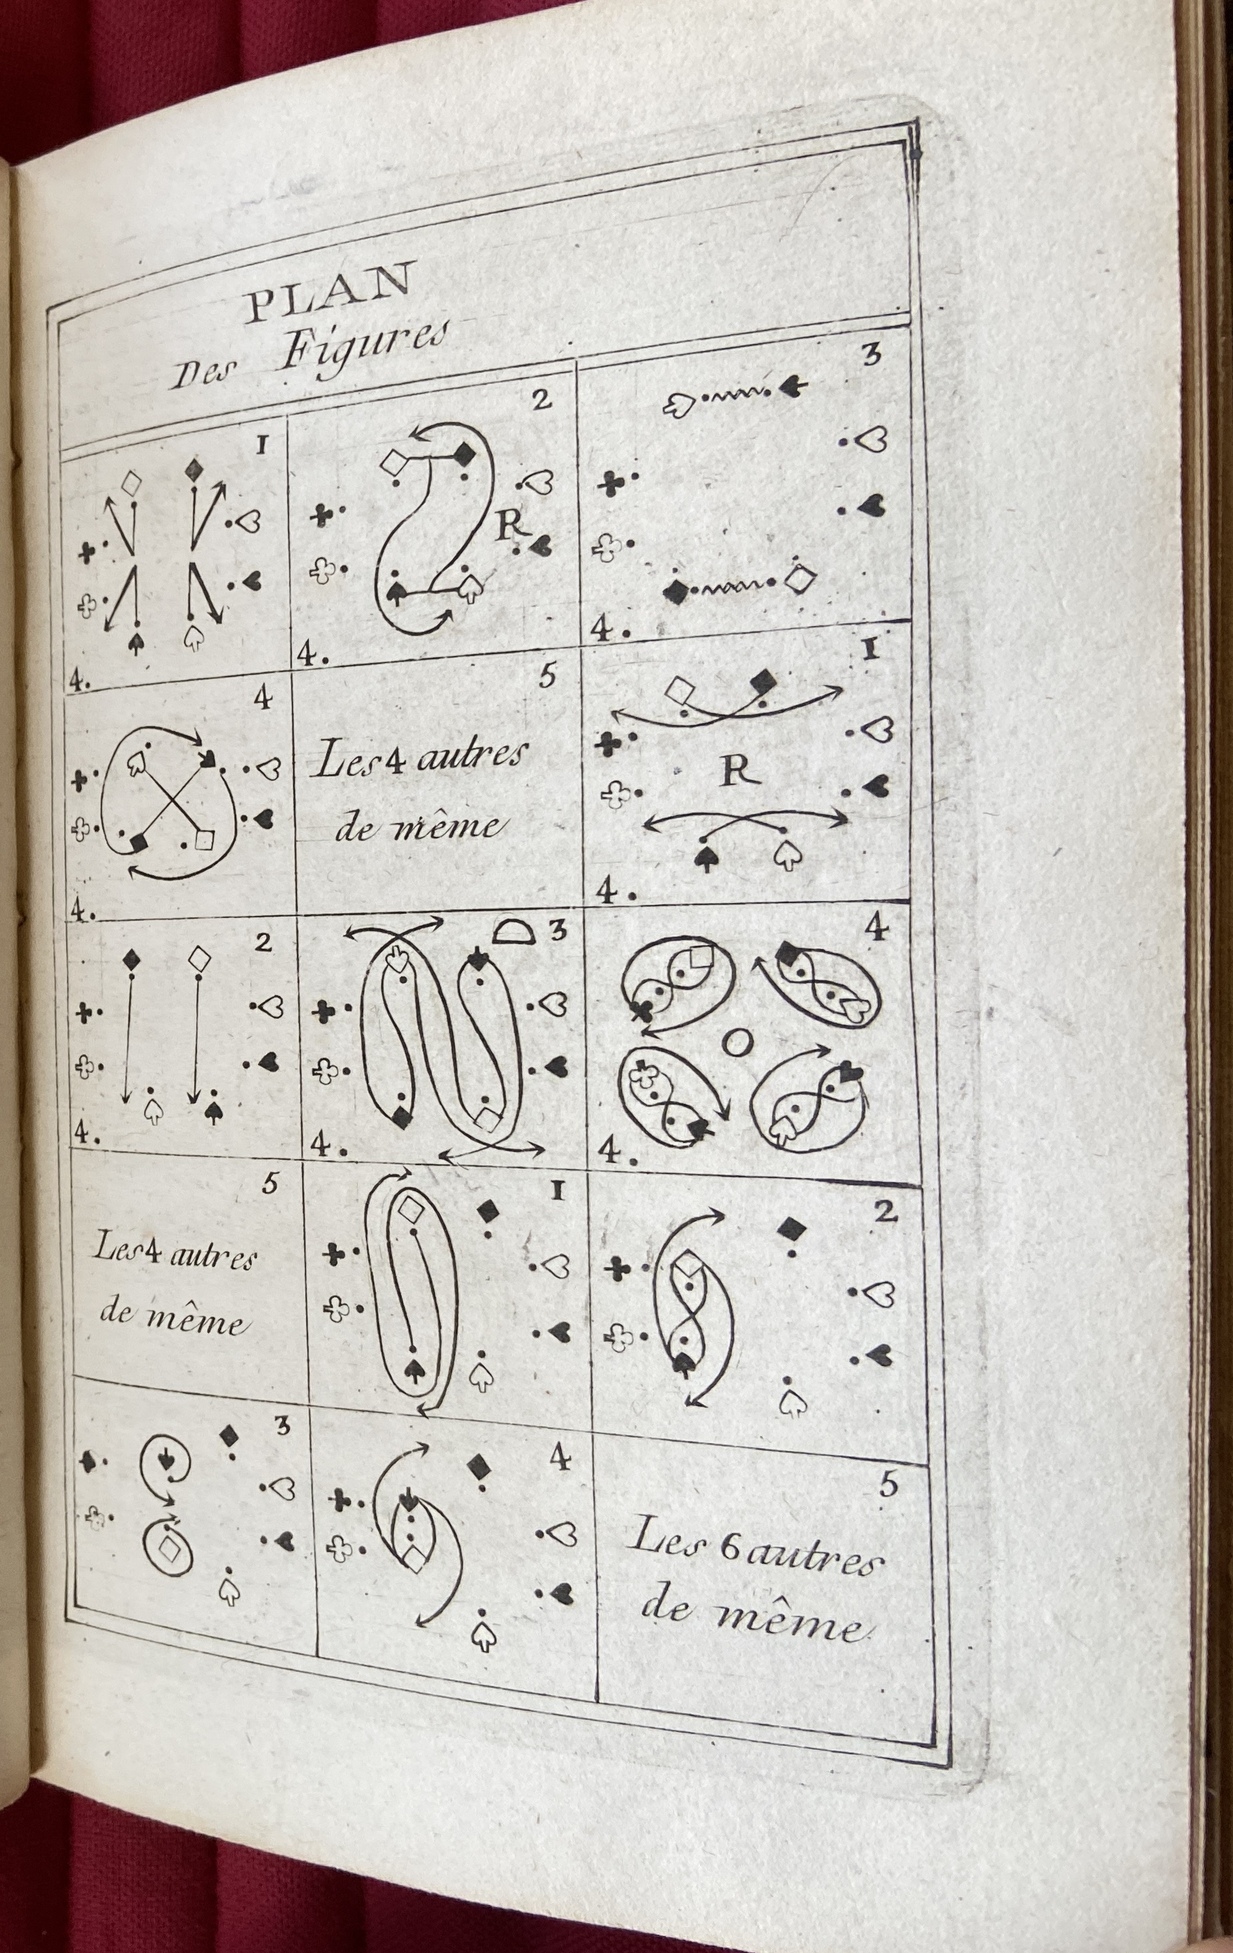 PLAN
Des Figures
1
4.
2
R
4.
3
4.
4
4.
5
Les 4 autres
de même
1
R
4.
2
4.
3
4.
4
4.
5
Les 4 autres
de même
1
2
3
4
5
Les 6 autres
de même